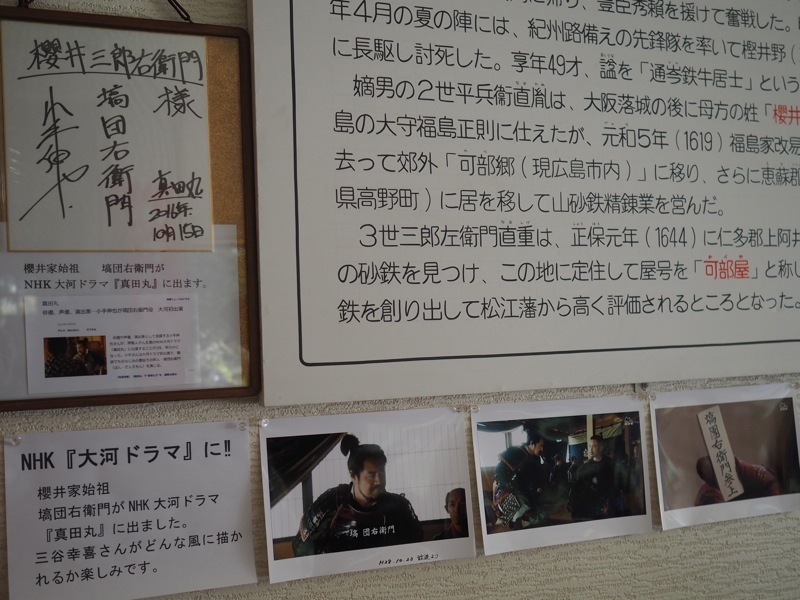 櫻井三郎右衛門
様
塙団右衛門
真田丸
2016年
10月15日
櫻井家始祖 塙団右衛門が
NHK大河ドラマ『真田丸』に出ます。
真田丸
年4月の夏の陣には、紀州路備えの先鋒隊を率いて樫井野（
に長駆し討死した。享年49才、諡を「通岑鉄牛居士」という
嫡男の2世平兵衛直胤は、大阪落城の後に母方の姓「櫻井
島の大守福島正則に仕えたが、元和5年（1619）福島家改易
去って郊外「可部郷（現広島市内）」に移り、さらに恵蘇郡
県高野町）に居を移して山砂鉄精錬業を営んだ。
3世三郎左衛門直重は、正保元年（1644）に仁多郡上阿井
の砂鉄を見つけ、この地に定住して屋号を「可部屋」と称し
鉄を創り出して松江藩から高く評価されるところとなった。
NHK『大河ドラマ』に!!
櫻井家始祖
塙団右衛門がNHK大河ドラマ
『真田丸』に出ました。
三谷幸喜さんがどんな風に描か
れるか楽しみです。
塙 団右衛門
H28.10.23 放送より
塙團右衛門参上